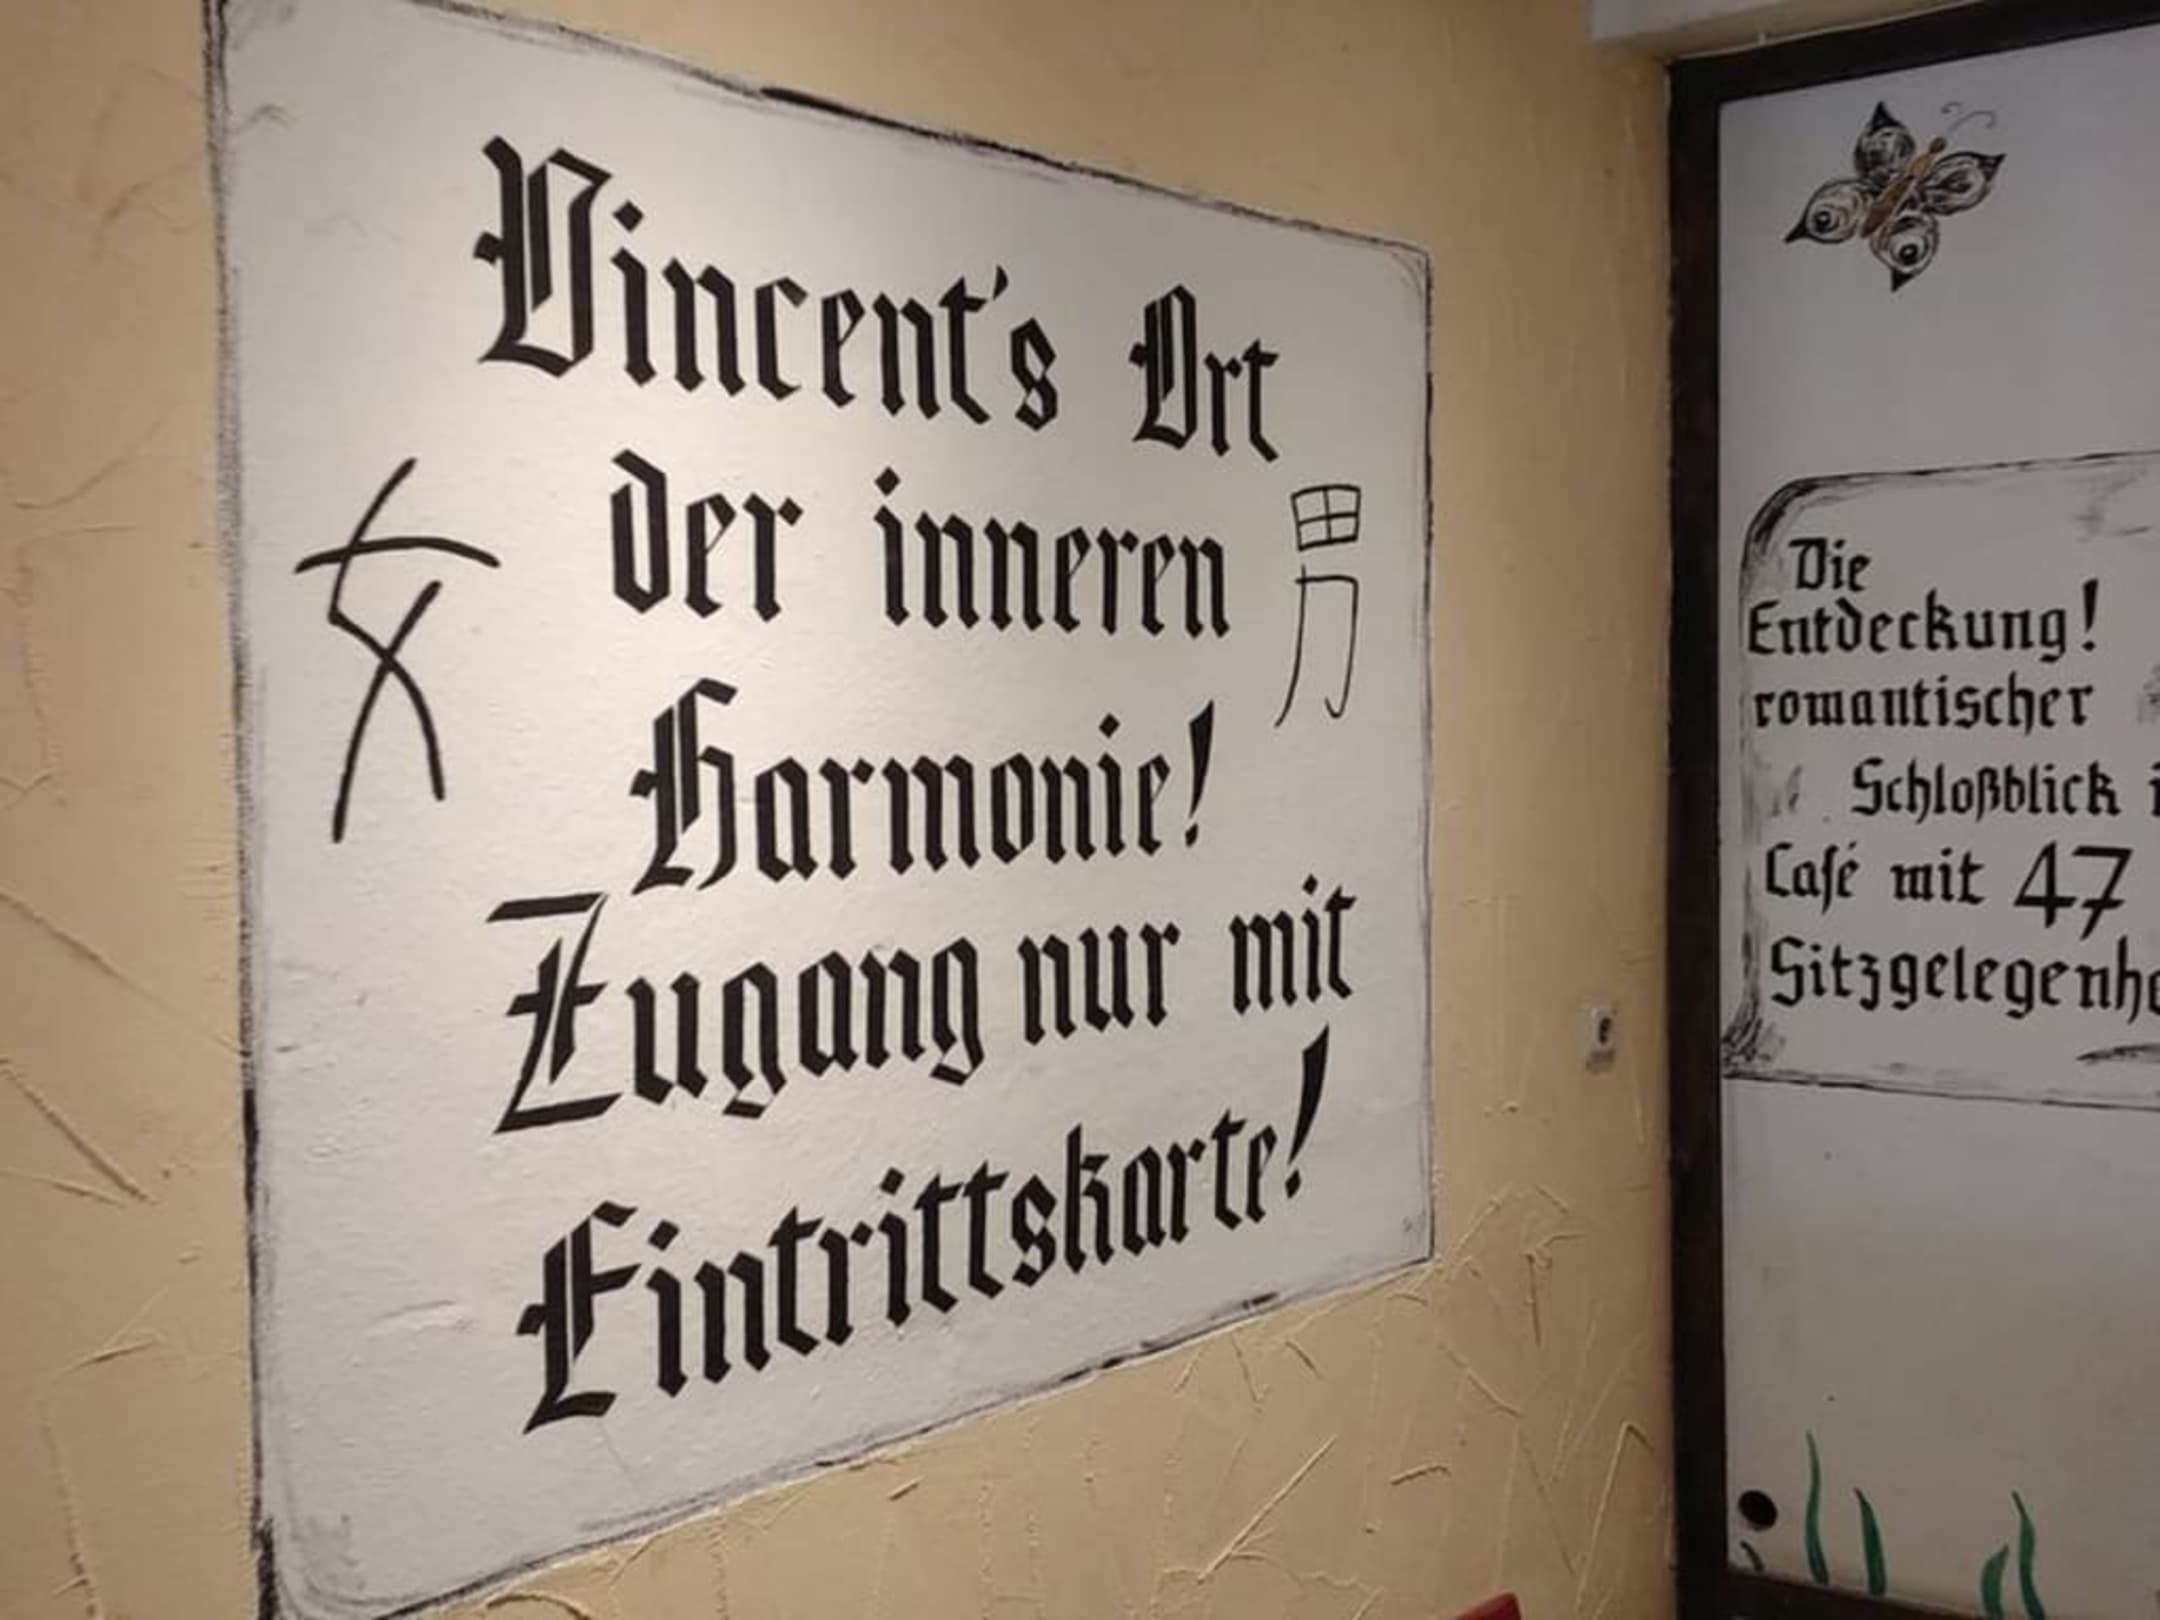 Vincent's Ort
der inneren
Harmonie!
Zugang nur mit
Eintrittskarte!
女
男
Die
Entdeckung!
romantischer
Schloßblick
Café mit 47